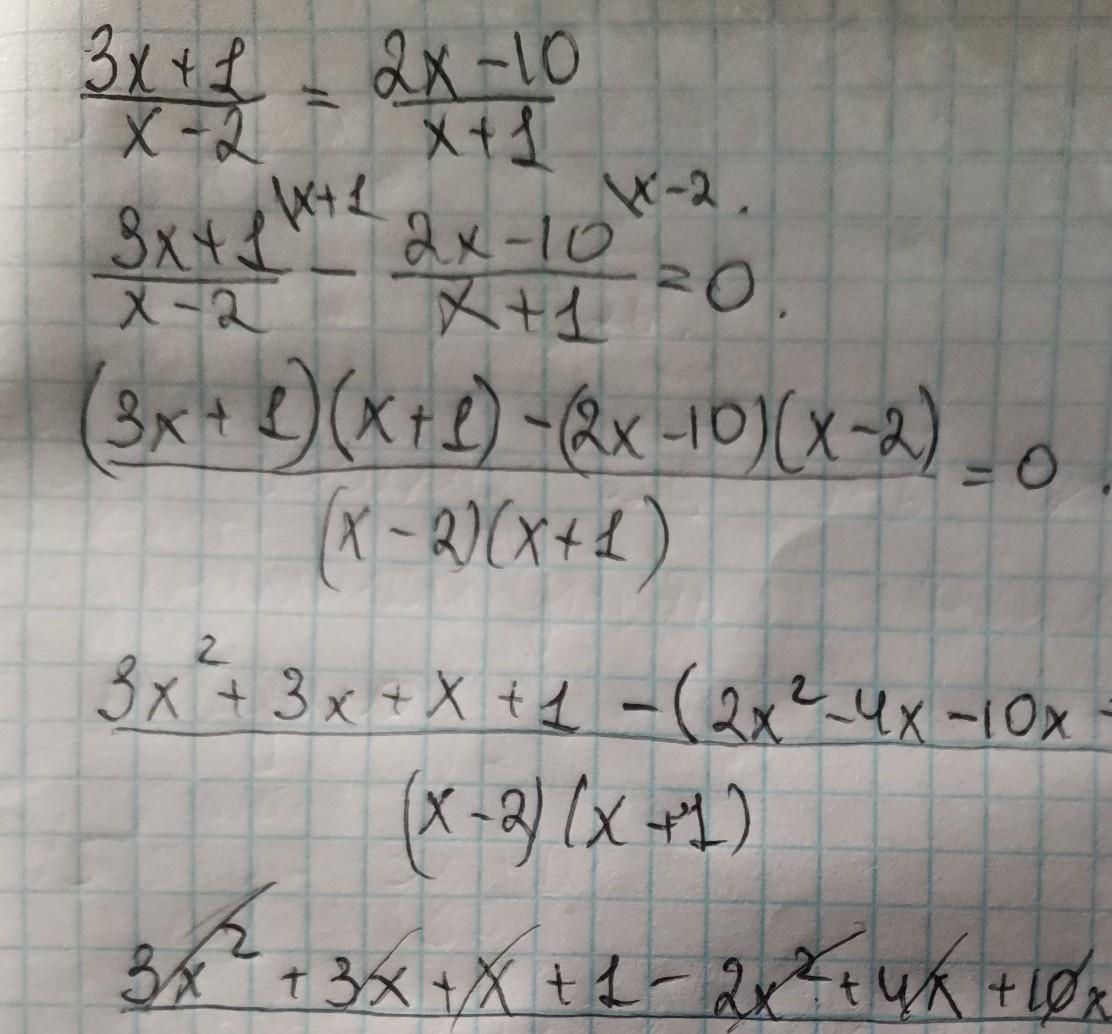 (3x+1)/(x-2) = (2x-10)/(x+1)
(3x+1)/(x-2) \x+1 - (2x-10)/(x+1) \x-2. = 0.
((3x+1)(x+1)-(2x-10)(x-2))/((x-2)(x+1)) = 0.
(3x²+3x+x+1-(2x²-4x-10x)/((x-2)(x+1))
3x²+3x+x+1-2x²+4x+10x